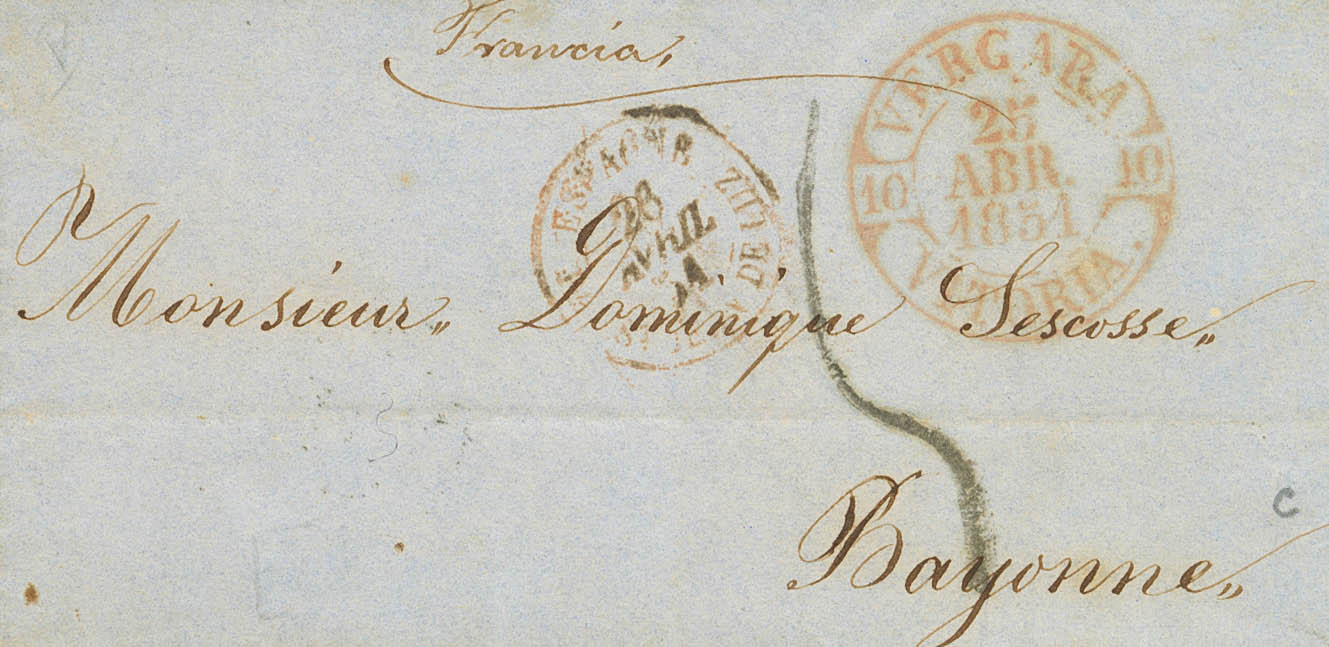 Francia,
VERGARA
10 25 10
ABR.
1851
VITORIA.
ESPAGNE
28
AVRIL
51
DE LUZ
Monsieur„ Dominique Sescosse„
Bayonne„
C